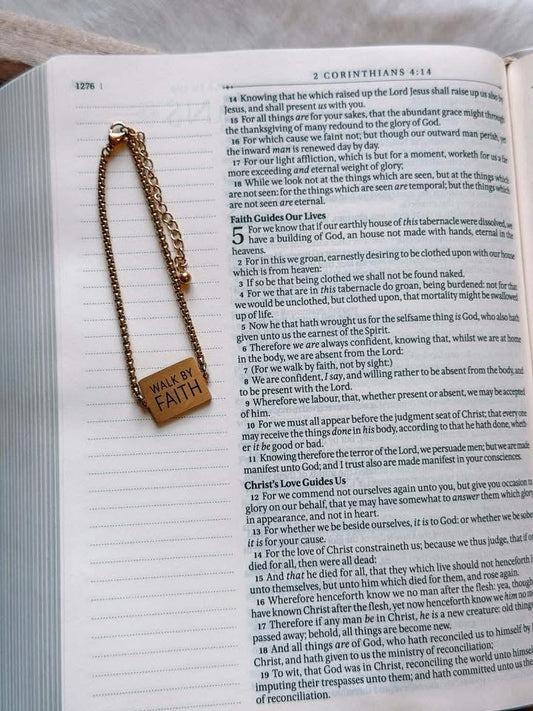 1276
2 CORINTHIANS 4:14
14 Knowing that he which raised up the Lord Jesus shall raise up us also by
Jesus, and shall present us with you.
15 For all things are for your sakes, that the abundant grace might through
the thanksgiving of many redound to the glory of God.
16 For which cause we faint not; but though our outward man perish, yet
the inward man is renewed day by day.
17 For our light affliction, which is but for a moment, worketh for us a far
more exceeding and eternal weight of glory;
18 While we look not at the things which are seen, but at the things which
are not seen: for the things which are seen are temporal; but the things which
are not seen are eternal.
Faith Guides Our Lives
5 For we know that if our earthly house of this tabernacle were dissolved, we
have a building of God, an house not made with hands, eternal in the
heavens.
2 For in this we groan, earnestly desiring to be clothed upon with our house
which is from heaven:
3 If so be that being clothed we shall not be found naked.
4 For we that are in this tabernacle do groan, being burdened: not for that
we would be unclothed, but clothed upon, that mortality might be swallowed
up of life.
5 Now he that hath wrought us for the selfsame thing is God, who also hath
given unto us the earnest of the Spirit.
6 Therefore we are always confident, knowing that, whilst we are at home
in the body, we are absent from the Lord:
7 (For we walk by faith, not by sight:)
8 We are confident, I say, and willing rather to be absent from the body, and
to be present with the Lord.
9 Wherefore we labour, that, whether present or absent, we may be accepted
of him.
10 For we must all appear before the judgment seat of Christ; that every one
may receive the things done in his body, according to that he hath done, wheth-
er it be good or bad.
11 Knowing therefore the terror of the Lord, we persuade men; but we are made
manifest unto God; and I trust also are made manifest in your consciences.
Christ's Love Guides Us
12 For we commend not ourselves again unto you, but give you occasion to
glory on our behalf, that ye may have somewhat to answer them which glory
in appearance, and not in heart.
13 For whether we be beside ourselves, it is to God: or whether we be sober,
it is for your cause.
14 For the love of Christ constraineth us; because we thus judge, that if one
died for all, then were all dead:
15 And that he died for all, that they which live should not henceforth live
unto themselves, but unto him which died for them, and rose again.
16 Wherefore henceforth know we no man after the flesh: yea, though
have known Christ after the flesh, yet now henceforth know we him no more.
17 Therefore if any man be in Christ, he is a new creature: old things
passed away; behold, all things are become new.
18 And all things are of God, who hath reconciled us to himself by
Christ, and hath given to us the ministry of reconciliation;
19 To wit, that God was in Christ, reconciling the world unto himself,
imputing their trespasses unto them; and hath committed unto us the
of reconciliation.
WALK BY
FAITH